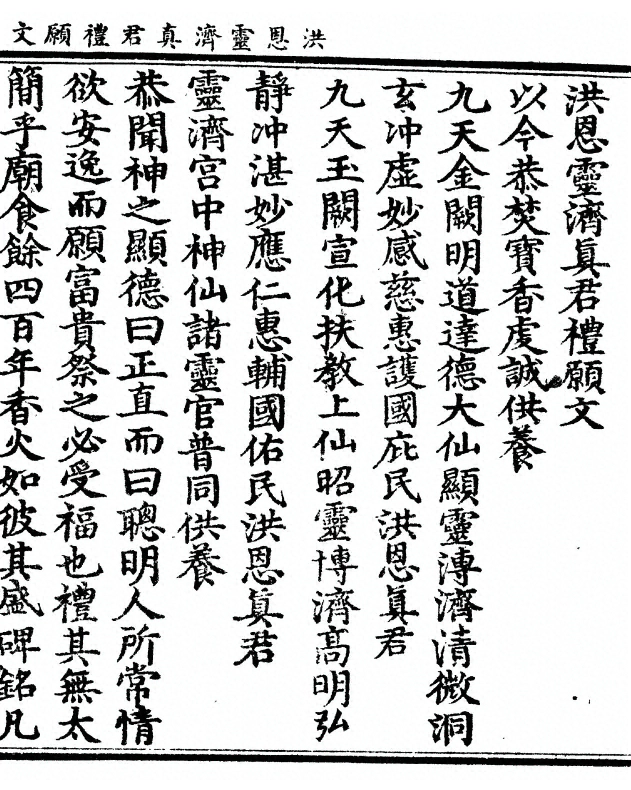 洪恩靈濟真君禮願文
洪恩靈濟眞君禮願文
以今恭焚寶香虔誠供養
九天金闕明道達德大仙顯靈溥濟清微洞
玄冲虛妙感慈惠護國庇民洪恩眞君
九天玉闕宣化扶教上仙昭靈博濟高明弘
靜冲湛妙應仁惠輔國佑民洪恩眞君
靈濟宮中神仙諸靈官普同供養
恭聞神之顯德曰正直而曰聰明人所常情
欲安逸而願富貴祭之必受福也禮其無太
簡乎廟食餘四百年香火如彼其盛碑銘凡